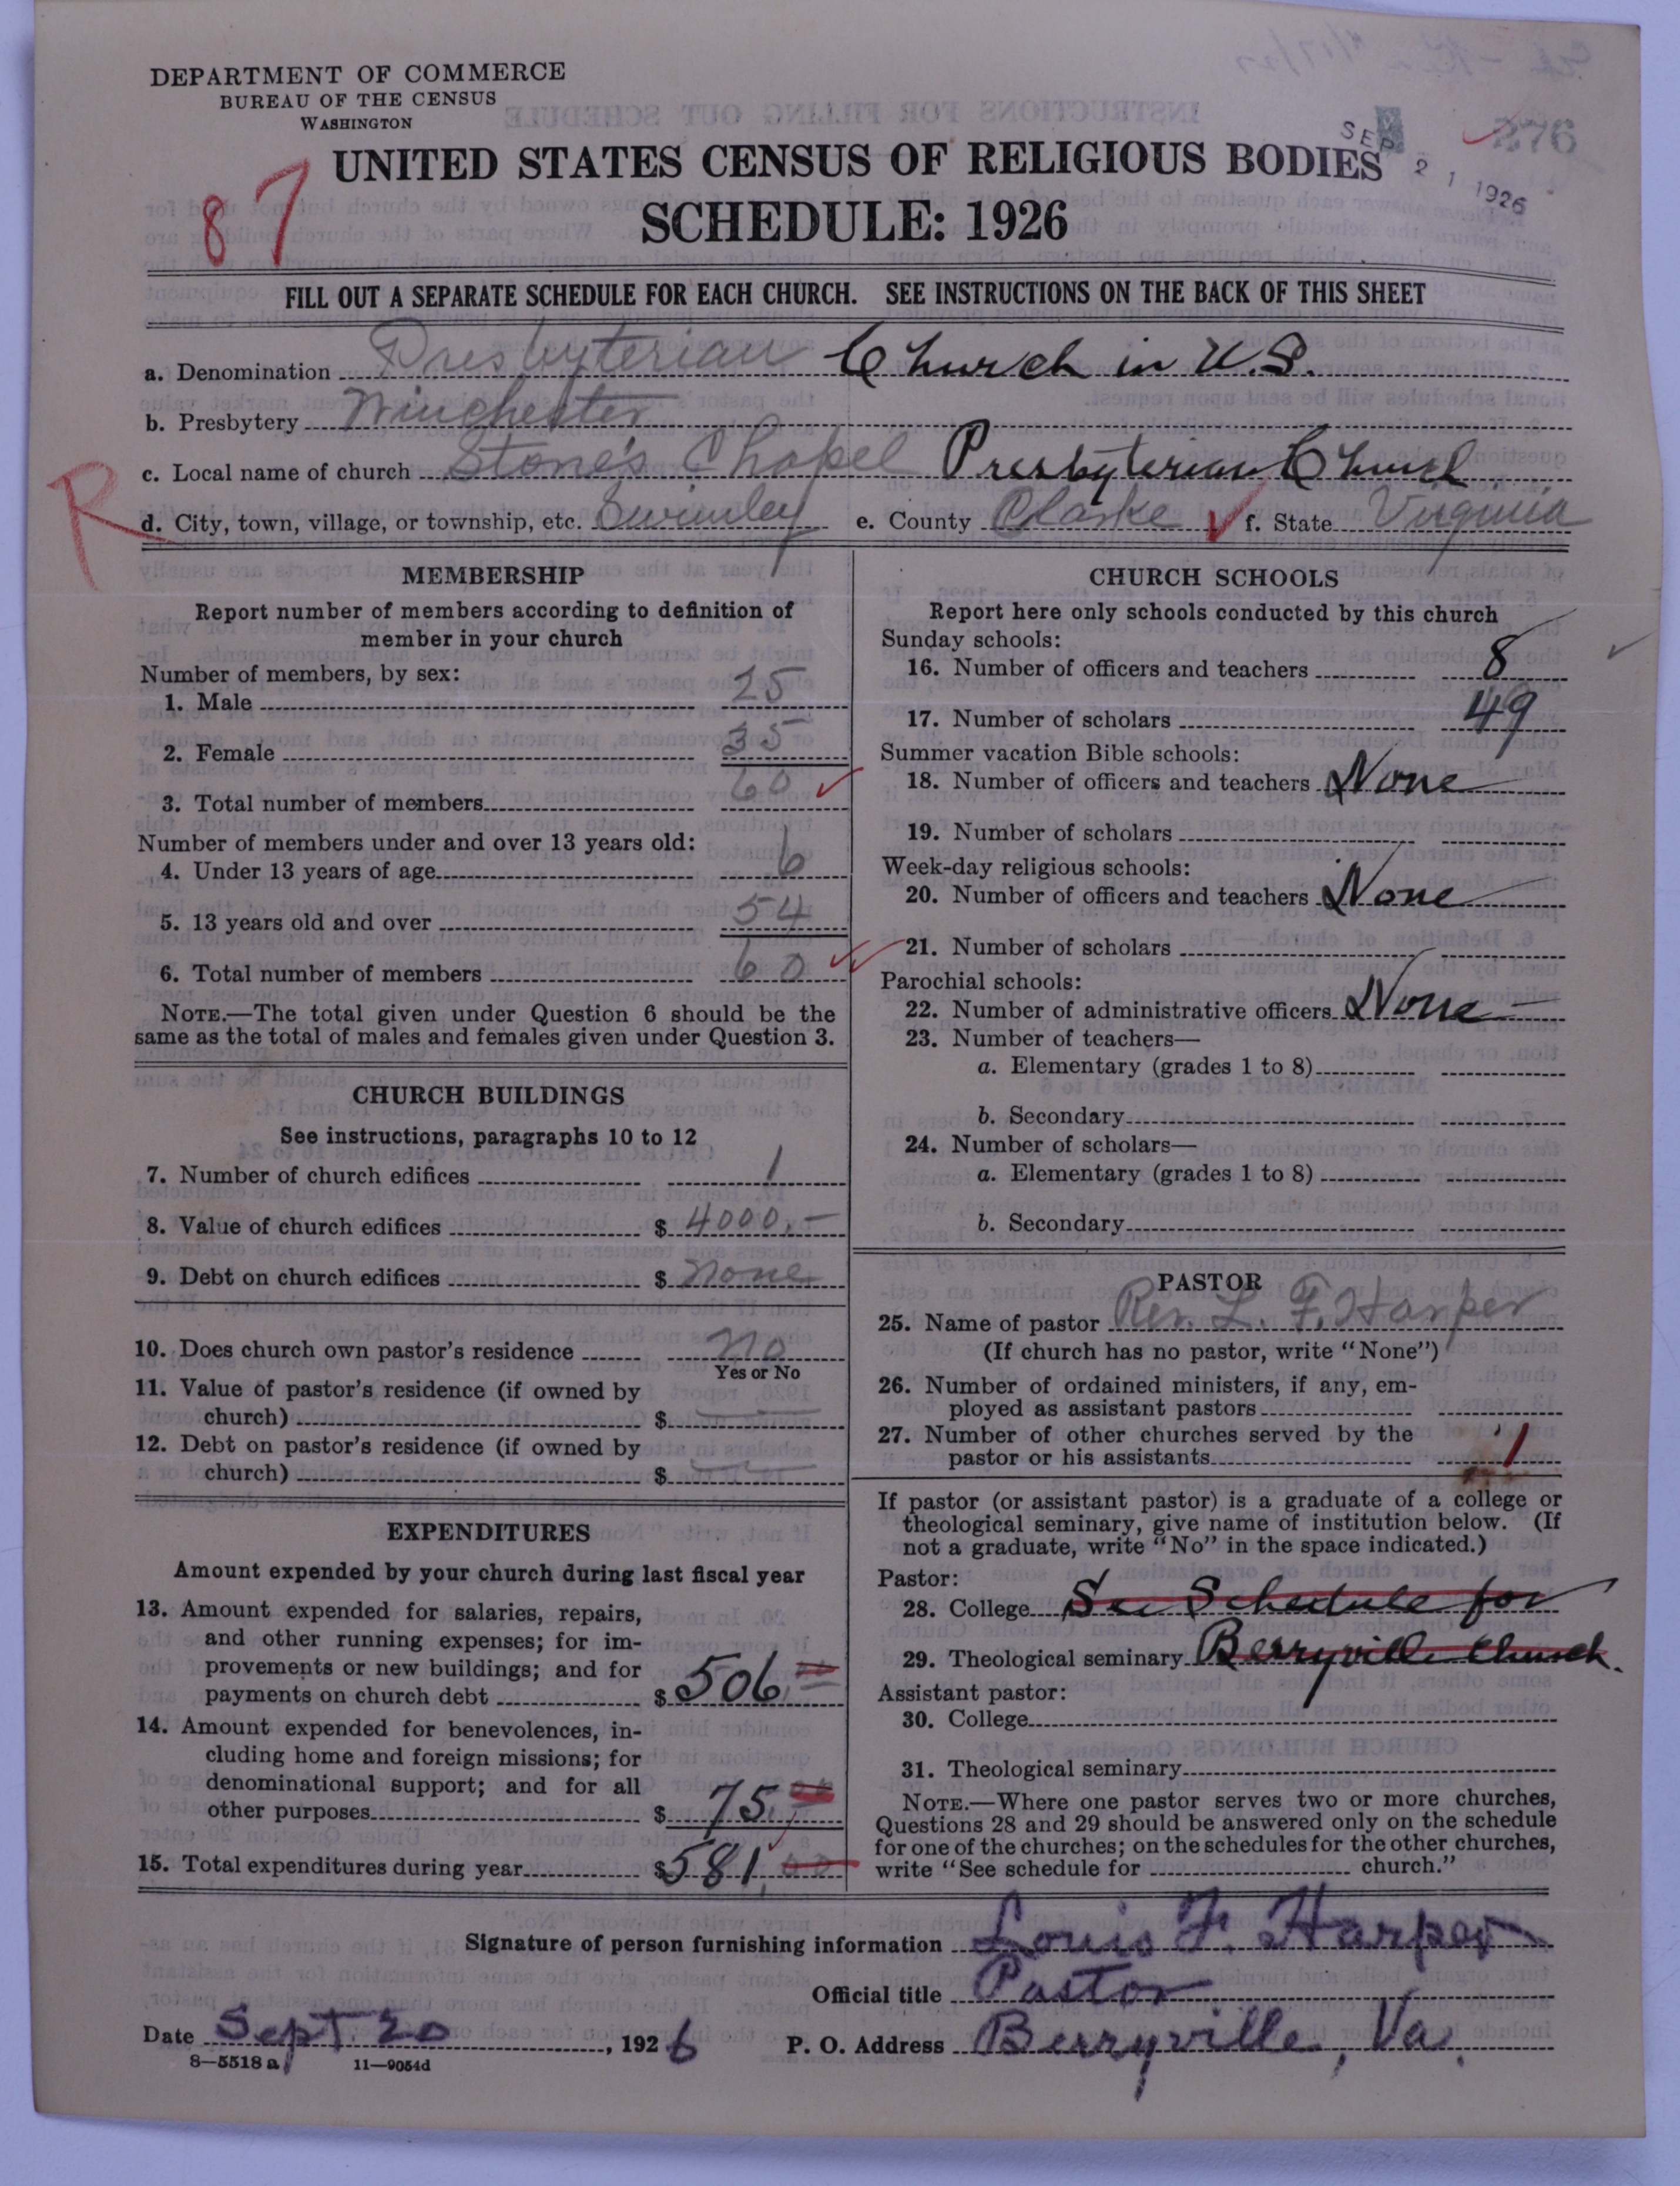 DEPARTMENT OF COMMERCE
BUREAU OF THE CENSUS
WASHINGTON
SEP 21 1926
376
UNITED STATES CENSUS OF RELIGIOUS BODIES
SCHEDULE: 1926
87
FILL OUT A SEPARATE SCHEDULE FOR EACH CHURCH. SEE INSTRUCTIONS ON THE BACK OF THIS SHEET
a. Denomination Presbyterian Church in U.S.
b. Presbytery Winchester
c. Local name of church Stone's Chapel Presbyterian Church
R
d. City, town, village, or township, etc. Swimley e. County Clarke f. State Virginia
MEMBERSHIP
Report number of members according to definition of
member in your church
Number of members, by sex:
1. Male 25
2. Female 35
3. Total number of members 60
Number of members under and over 13 years old:
4. Under 13 years of age 6
5. 13 years old and over 54
6. Total number of members 60
NOTE.—The total given under Question 6 should be the
same as the total of males and females given under Question 3.
CHURCH BUILDINGS
See instructions, paragraphs 10 to 12
7. Number of church edifices 1
8. Value of church edifices $ 4000.—
9. Debt on church edifices $ None
10. Does church own pastor's residence No
Yes or No
11. Value of pastor's residence (if owned by
church) $ —
12. Debt on pastor's residence (if owned by
church) $ —
EXPENDITURES
Amount expended by your church during last fiscal year
13. Amount expended for salaries, repairs,
and other running expenses; for im-
provements or new buildings; and for
payments on church debt $ 506
14. Amount expended for benevolences, in-
cluding home and foreign missions; for
denominational support; and for all
other purposes $ 75
15. Total expenditures during year $ 581.00
CHURCH SCHOOLS
Report here only schools conducted by this church
Sunday schools:
16. Number of officers and teachers 8
17. Number of scholars 49
Summer vacation Bible schools:
18. Number of officers and teachers None
19. Number of scholars
Week-day religious schools:
20. Number of officers and teachers None
21. Number of scholars
Parochial schools:
22. Number of administrative officers None
23. Number of teachers—
a. Elementary (grades 1 to 8)
b. Secondary
24. Number of scholars—
a. Elementary (grades 1 to 8)
b. Secondary
PASTOR
25. Name of pastor Rev. L. F. Harper
(If church has no pastor, write "None")
26. Number of ordained ministers, if any, em-
ployed as assistant pastors
27. Number of other churches served by the
pastor or his assistants 1
If pastor (or assistant pastor) is a graduate of a college or
theological seminary, give name of institution below. (If
not a graduate, write "No" in the space indicated.)
Pastor:
28. College See Schedule for
29. Theological seminary Berryville Church.
Assistant pastor:
30. College
31. Theological seminary
NOTE.—Where one pastor serves two or more churches,
Questions 28 and 29 should be answered only on the schedule
for one of the churches; on the schedules for the other churches,
write "See schedule for church."
Signature of person furnishing information Louis F. Harper
Official title Pastor
Date Sept. 20, 1926 P. O. Address Berryville, Va.
8—5518 a 11—9054d